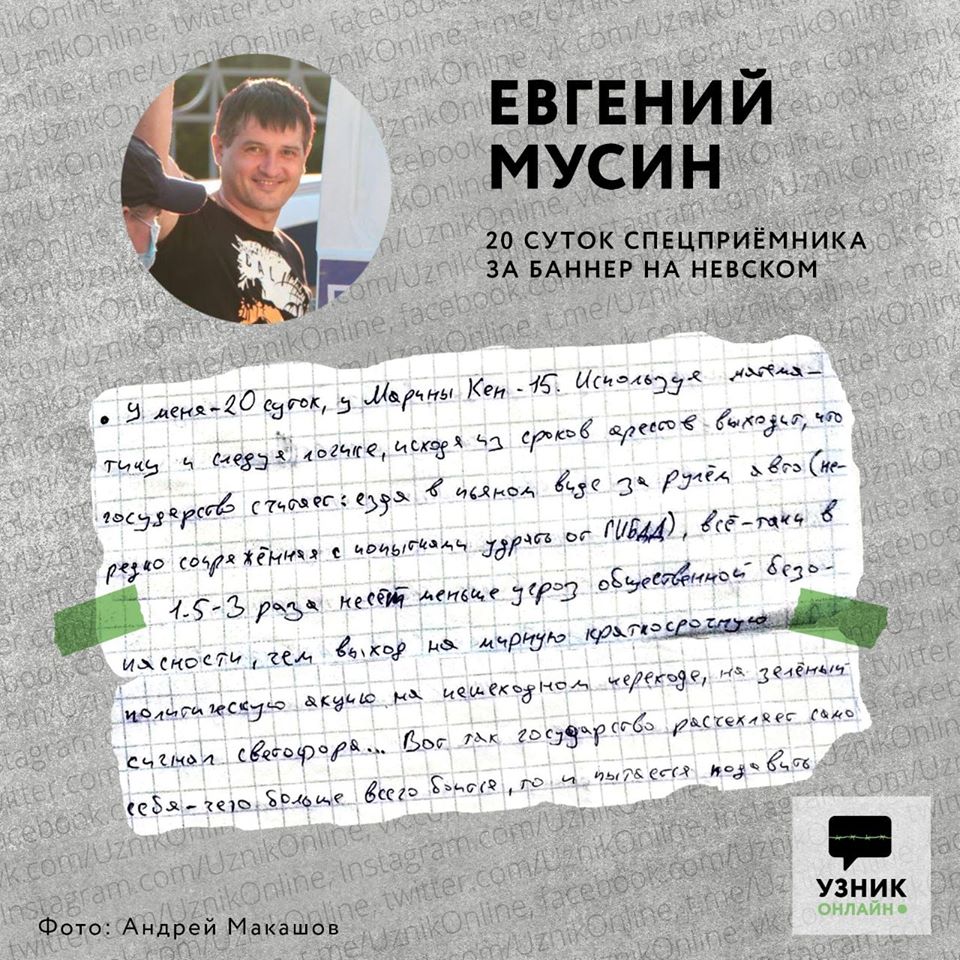 ЕВГЕНИЙ
МУСИН
20 СУТОК СПЕЦПРИЁМНИКА
ЗА БАННЕР НА НЕВСКОМ
• У меня - 20 суток, у Марины Кен - 15. Используя матема-
тику и следуя логике, исходя из сроков арестов выходит, что
государство считает: езда в пьяном виде за рулём авто (не-
редко сопряжённая с попытками удрать от ГИБДД), всё-таки в
1.5-3 раза несёт меньше угроз общественной безо-
пасности, чем выход на мирную краткосрочную
политическую акцию на пешеходном переходе, на зелёный
сигнал светофора... Вот так государство расчехляет само
себя - чего больше всего боится, то и пытается подавить
УЗНИК
ОНЛАЙН
Фото: Андрей Макашов